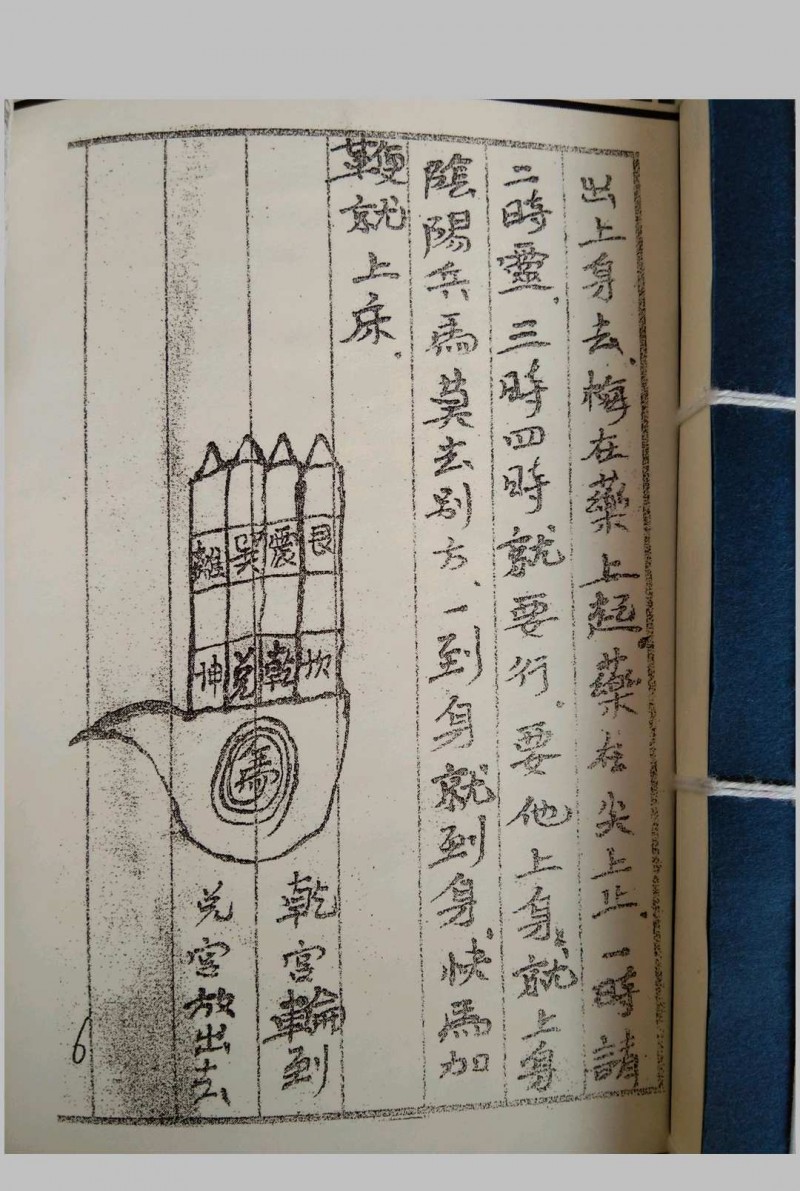 出上身去.梅在藥上起.藥在尖上止.一時請
二時靈.三時四時就要行.要他上身.就上身
陰陽兵馬莫去别方、一到身就到身.快馬加
鞭就上床.
離巽震艮
坤兌乾坎
馬
乾宫輪到
兑宫放出去
6